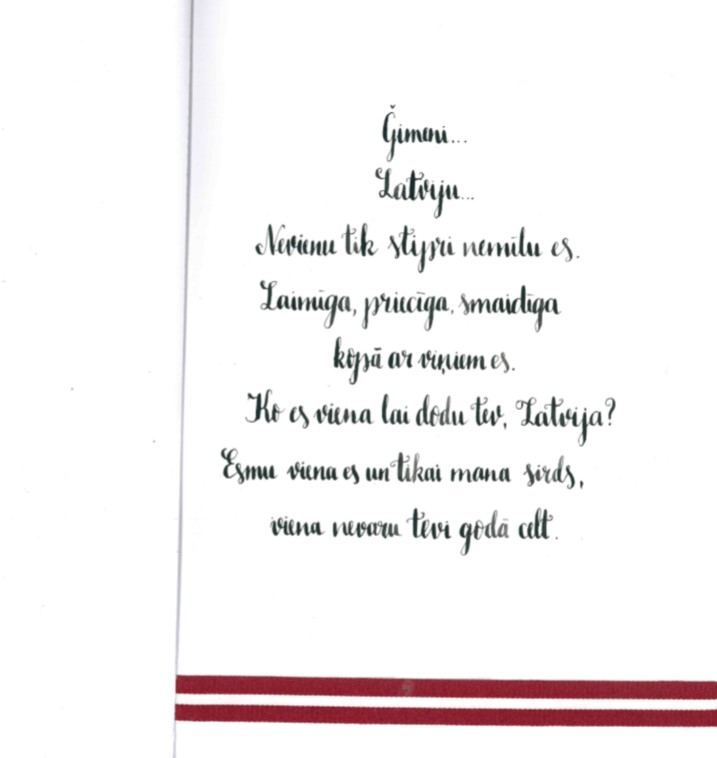 Ģimeni...
Latviju...
Nevienu tik stipri nemīlu es.
Laimīga, priecīga, smaidīga
kopā ar viņiem es.
Ko es viena lai dodu tev, Latvija?
Esmu viena es un tikai mana sirds,
viena nevaru tevi godā celt.